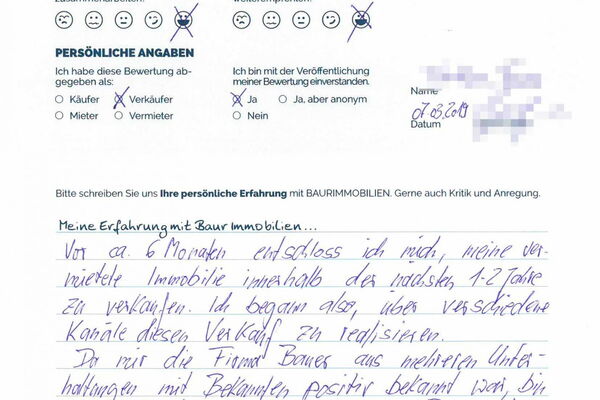 zusammenarbeiten?
weiterempfehlen?
PERSÖNLICHE ANGABEN
Ich habe diese Bewertung ab-
gegeben als:
Käufer Verkäufer
Mieter Vermieter
Ich bin mit der Veröffentlichung
meiner Bewertung einverstanden.
Ja Ja, aber anonym
Nein
Name
07.03.2019
Datum
Bitte schreiben Sie uns Ihre persönliche Erfahrung mit BAURIMMOBILIEN. Gerne auch Kritik und Anregung.
Meine Erfahrung mit Baur Immobilien...
Vor ca. 6 Monaten entschloss ich mich, meine ver-
mietete Immobilie innerhalb der nächsten 1-2 Jahre
zu verkaufen. Ich begann also, über verschiedene
Kanäle diesen Verkauf zu realisieren.
Da mir die Firma Bauer aus mehreren Unter-
haltungen mit Bekannten positiv bekannt war, bin